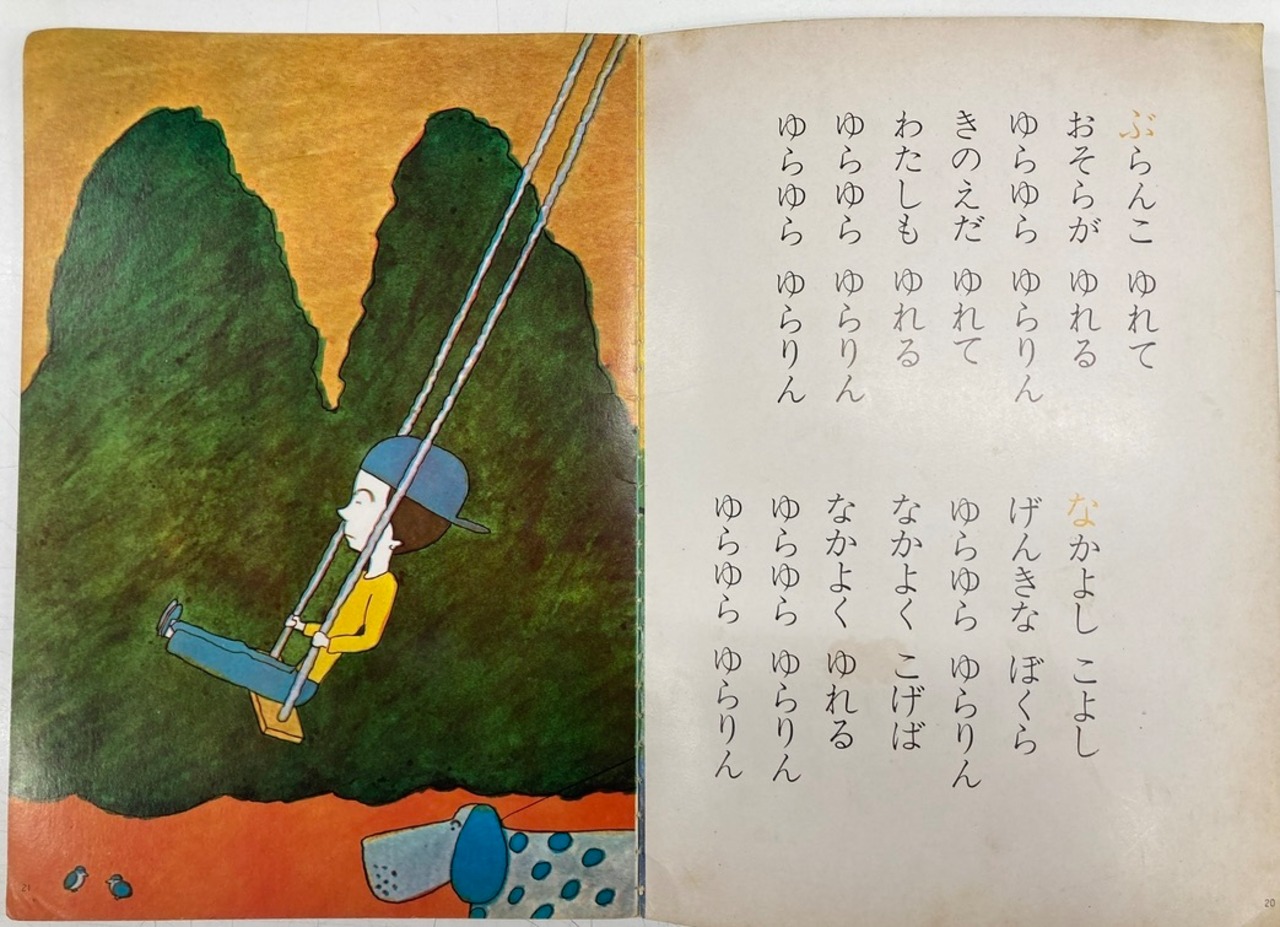 ぶらんこ ゆれて
おそらが ゆれる
ゆらゆら ゆらりん
きのえだ ゆれて
わたしも ゆれる
ゆらゆら ゆらりん
ゆらゆら ゆらりん
なかよし こよし
げんきな ぼくら
ゆらゆら ゆらりん
なかよく こげば
なかよく ゆれる
ゆらゆら ゆらりん
ゆらゆら ゆらりん
20
21